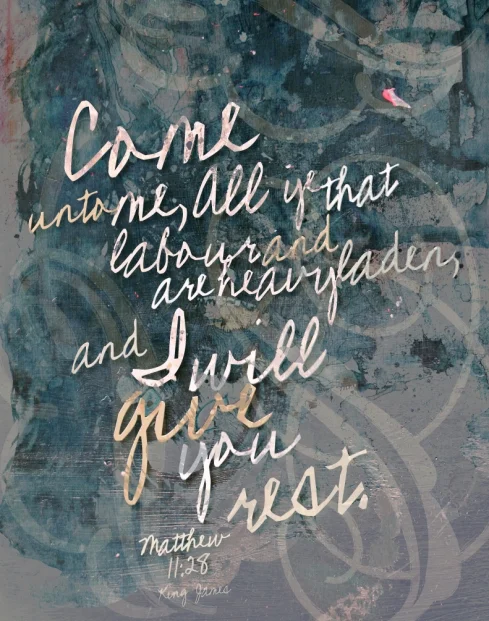 Come
unto me, All ye that
labour and
are heavy laden,
and I will
give
you
rest.
Matthew
11:28
King James